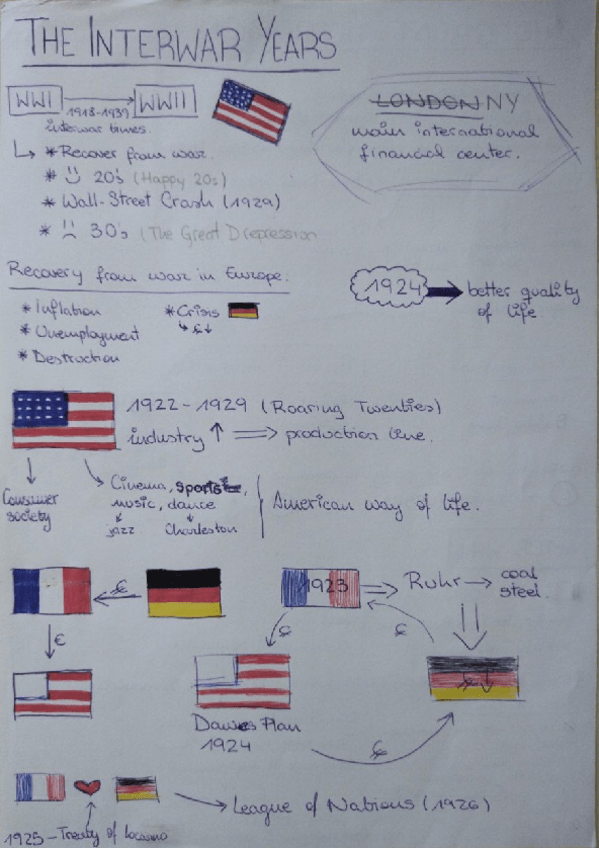 THE INTERWAR YEARS
WWI 1918-1939 WWII
interwar times.
* Recover from war.
* 20's (Happy 20s)
* Wall-Street Crash (1929)
* 30's (The Great Drepression
LONDON NY
main international
financial center.
Recovery from war in Europe:
* Inflation
* Unemployment
* Destruction
* Crisis
€ ↓
1924 → better quality
of life
1922-1929 (Roaring Twenties)
industry ↑ ⇒ production line.
Consumer
society
Cinema, sports,
music, dance
jazz Charleston
American way of life.
€
€
1923 ⇒ Ruhr → coal
steel.
€ €
€ ↓
Dawes Plan
1924
€
League of Nations (1926)
1925 - Treaty of Locarno